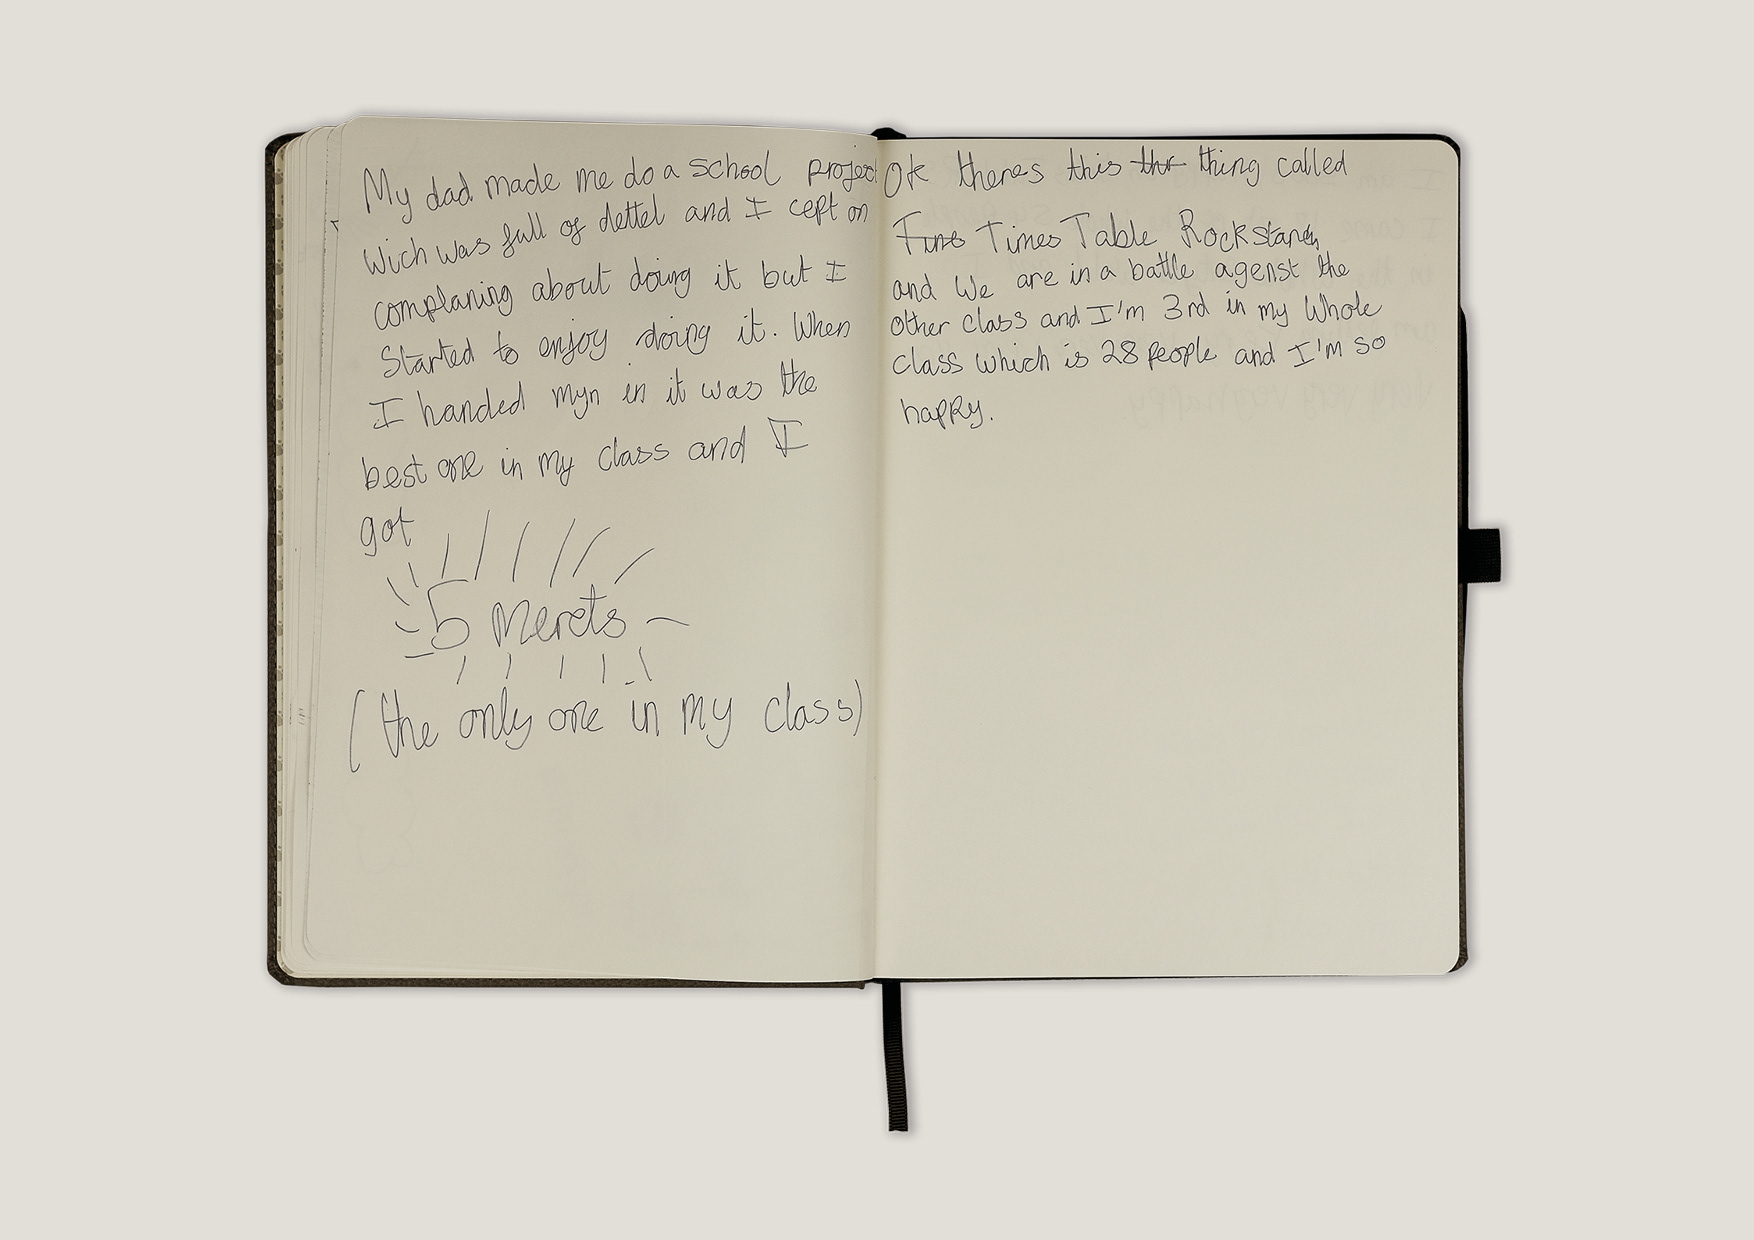 My dad made me do a school project
wich was full of dettel and I cept on
complaning about doing it but I
started to enjoy doing it. When
I handed myn in it was the
best one in my class and I
got
5 merets
(the only one in my class)
Ok theres this thr thing called
Fine Times Table Rock
and we are in a battle agenst the
other class and I'm 3rd in my whole
class which is 28 people and I'm so
happy.